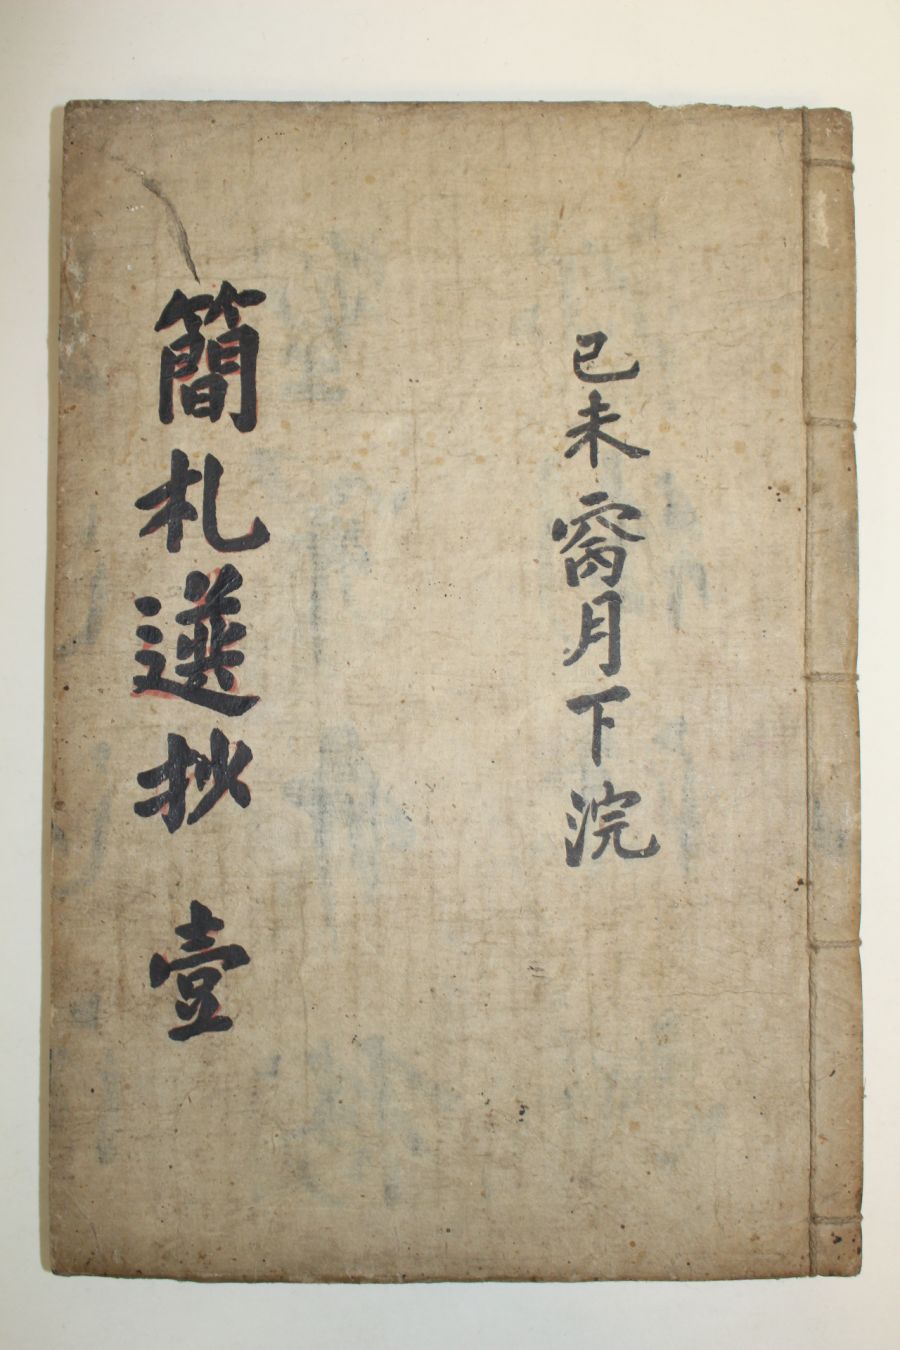 己未窉月下浣
簡札選抄 壹